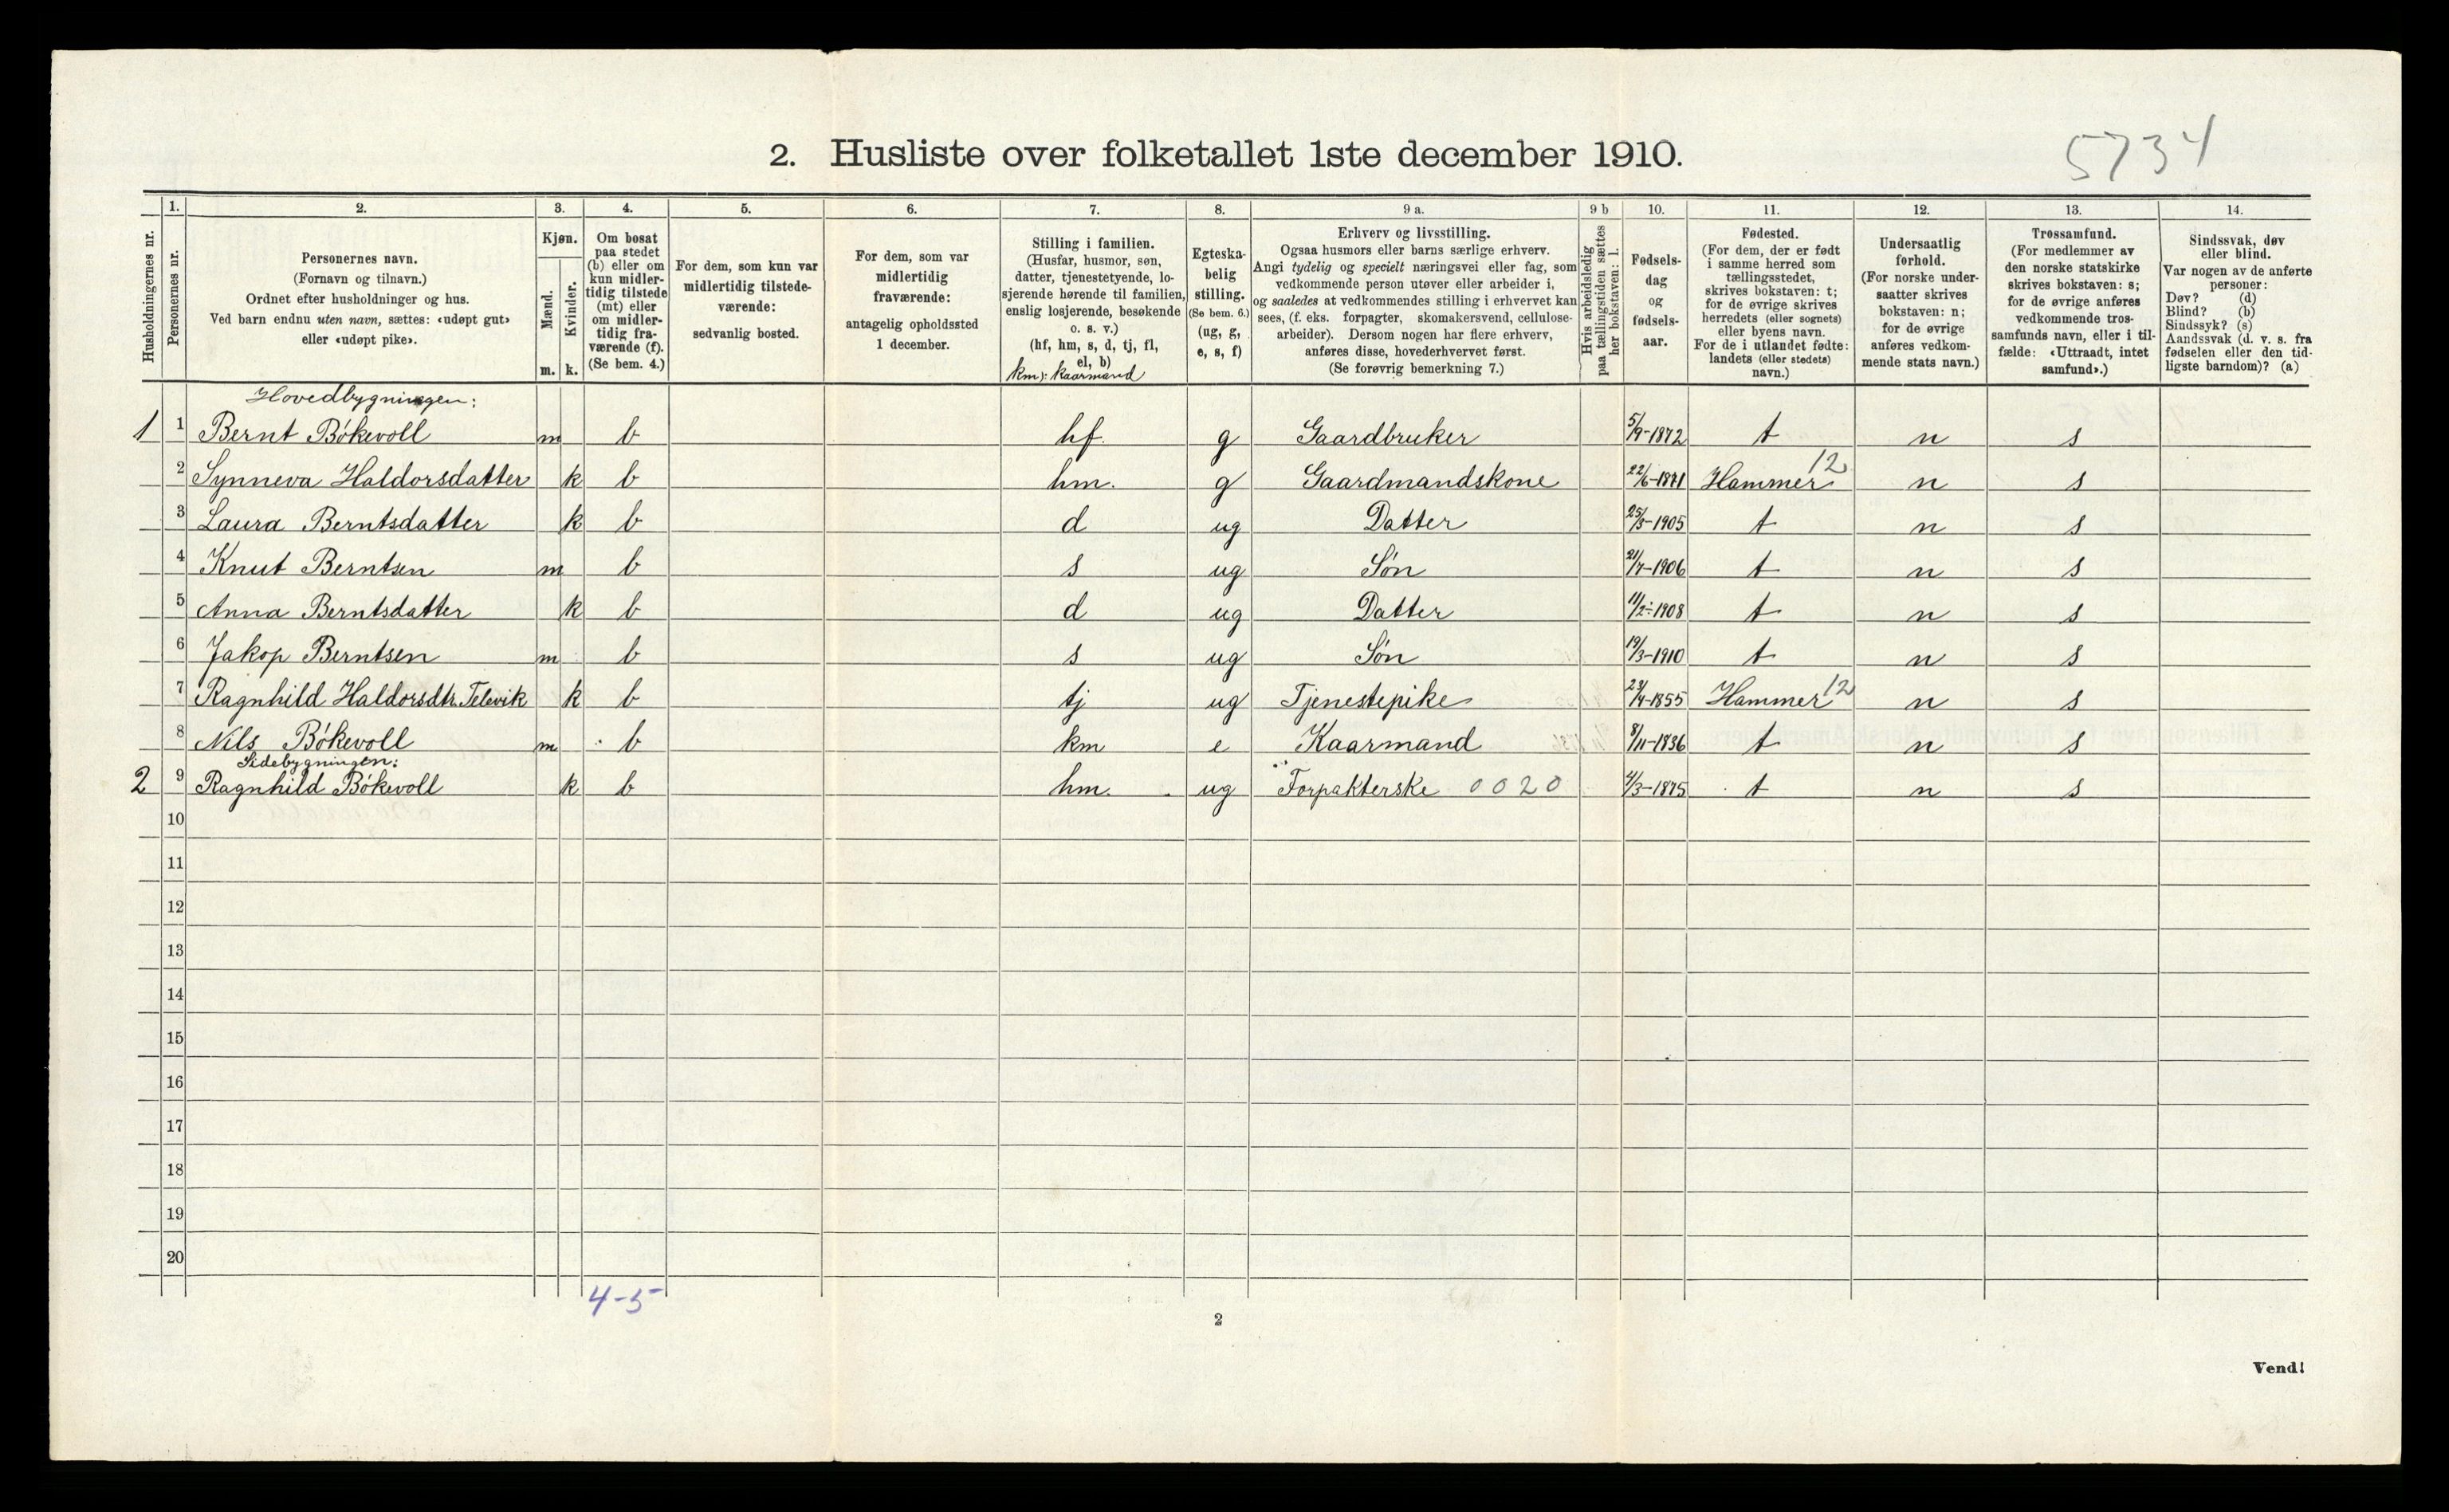 2. Husliste over folketallet 1ste december 1910.
5734
Husholdningernes nr.
1.
Personernes nr.
2.
Personernes navn.
(Fornavn og tilnavn.)
Ordnet efter husholdninger og hus.
Ved barn endnu uten navn, sættes: «udøpt gut»
eller «udøpt pike».
3.
Kjøn.
Mænd.
Kvinder.
m. k.
4.
Om bosat
paa stedet
(b) eller om
kun midler-
tidig tilstede
(mt) eller
om midler-
tidig fra-
værende (f).
(Se bem. 4.)
5.
For dem, som kun var
midlertidig tilstede-
værende:
sedvanlig bosted.
6.
For dem, som var
midlertidig
fraværende:
antagelig opholdssted
1 december.
7.
Stilling i familien.
(Husfar, husmor, søn,
datter, tjenestetyende, lo-
sjerende hørende til familien,
enslig losjerende, besøkende
o. s. v.)
(hf, hm, s, d, tj, fl,
el, b)
km): kaarmand
8.
Egteska-
belig
stilling.
(Se bem. 6.)
(ug, g,
e, s, f)
9 a.
Erhverv og livsstilling.
Ogsaa husmors eller barns særlige erhverv.
Angi tydelig og specielt næringsvei eller fag, som
vedkommende person utøver eller arbeider i,
og saaledes at vedkommendes stilling i erhvervet kan
sees, (f. eks. forpagter, skomakersvend, cellulose-
arbeider). Dersom nogen har flere erhverv,
anføres disse, hovederhvervet først.
(Se forøvrig bemerkning 7.)
9 b
Hvis arbeidsledig
paa tællingstiden sættes
her bokstaven: l.
10.
Fødsels-
dag
og
fødsels-
aar.
11.
Fødested.
(For dem, der er født
i samme herred som
tællingsstedet,
skrives bokstaven: t;
for de øvrige skrives
herredets (eller sognets)
eller byens navn.
For de i utlandet fødte:
landets (eller stedets)
navn.)
12.
Undersaatlig
forhold.
(For norske under-
saatter skrives
bokstaven: n;
for de øvrige
anføres vedkom-
mende stats navn.)
13.
Trossamfund.
(For medlemmer av
den norske statskirke
skrives bokstaven: s;
for de øvrige anføres
vedkommende tros-
samfunds navn, eller i til-
fælde: «Uttraadt, intet
samfund».)
14.
Sindssvak, døv
eller blind.
Var nogen av de anførte
personer:
Døv? (d)
Blind? (b)
Sindssyk? (s)
Aandssvak (d. v. s. fra
fødselen eller den tid-
ligste barndom)? (a)
Hovedbygningen:
1 1 Bernt Bökevoll m b hf. g Gaardbruker 5/9-1872 t n s
2 Synneva Haldorsdatter k b hm. g Gaardmandskone 22/6-1871 Hammer 12 n s
3 Laura Berntsdatter k b d ug Datter 25/3-1905 t n s
4 Knut Berntsen m b s ug Søn 21/7-1906 t n s
5 Anna Berntsdatter k b d ug Datter 11/2-1908 t n s
6 Jakop Berntsen m b s ug Søn 19/3-1910 t n s
7 Ragnhild Haldorsdtr. Televik k b tj ug Tjenestepike 23/4-1855 Hammer 12 n s
8 Nils Bökevoll m b km e Kaarmand 8/11-1836 t n s
Sidebygningen:
2 9 Ragnhild Bökevoll k b hm. ug Forpakterske 0020 4/3-1875 t n s
10
11
12
13
14
15
16
17
18
19
20
4-5
2
Vend!